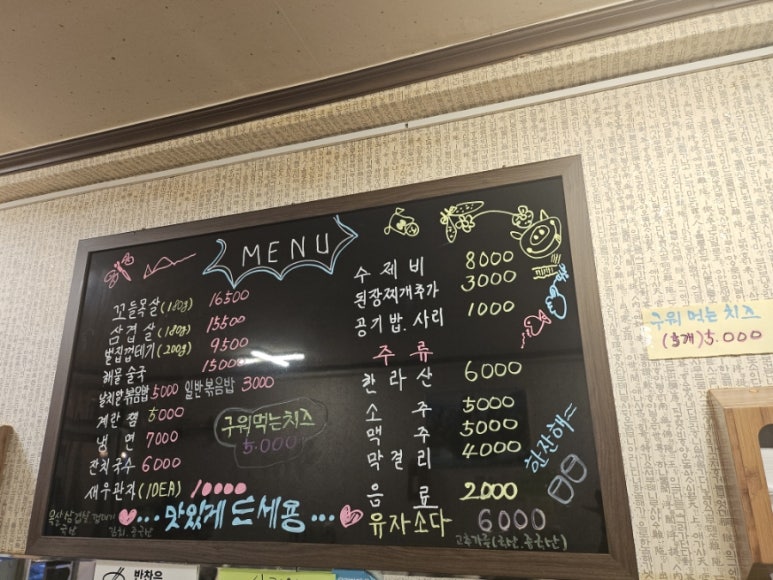 MENU
꼬들목살(180g) 16500
삼겹살(180g) 15500
벌집껍데기(200g) 9500
해물술국 15000
날치알볶음밥 5000 일반볶음밥 3000
계란찜 5000
냉면 7000
잔치국수 6000
새우관자(IDEA) 10000
구워먹는치즈
5.000
수제비 8000
된장찌개추가 3000
공기밥.사리 1000
주류
한라산 6000
소주 5000
맥주 5000
막걸리 4000
음료 2000
유자소다 6000
한잔해~
... 맛있게 드세용 ...
목살 삼겹살 껍데기
국산
김치. 중국산
고춧가루(국산.중국산)
구워먹는치즈
5.000
반찬은